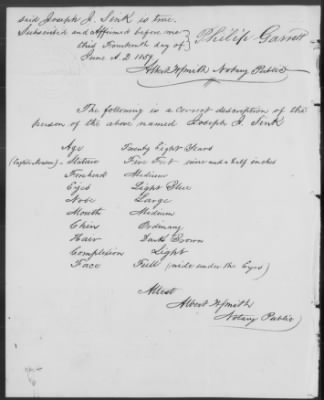 said Joseph J. Sink is true.
Subscribed and Affirmed before me
this Fourteenth day of
June A.D. 1859
Philip Garrett
Albert H Smith Notary Public
The following is a correct description of the
person of the above named Joseph J. Sink
Age Twenty Eight Years
Stature Five Feet nine and a half inches
Forehead Medium
Eyes Light Blue
Nose Large
Mouth Medium
Chin Ordinary
Hair Dark Brown
Complexion Light
Face Full (wide under the Eyes)
Attest
Albert H Smith
Notary Public